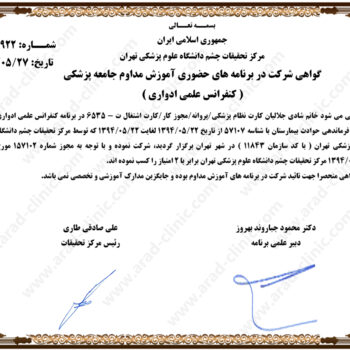 بسمه تعالی
جمهوری اسلامی ایران
مرکز تحقیقات چشم دانشگاه علوم پزشکی تهران
شماره: ۹۲۲
تاریخ: ۰۵/۲۷
گواهی شرکت در برنامه های حضوری آموزش مداوم جامعه پزشکی
( کنفرانس علمی ادواری )
می شود خانم شادی جلالیان کارت نظام پزشکی/پروانه/مجوز کار/کارت اشتغال ت - ۶۵۳۵ در برنامه کنفرانس علمی ادواری
فرماندهی حوادث بیمارستان با شناسه ۵۷۱۰۷ از تاریخ ۱۳۹۴/۰۵/۲۲ لغایت ۱۳۹۴/۰۵/۲۲ که توسط مرکز تحقیقات چشم دانشگاه
زشکی تهران ( با کد سازمان ۱۱۸۴۳ ) در شهر تهران برگزار گردید، شرکت نموده و با توجه به مجوز شماره ۱۵۷۱۰۲ مورخ
۱۳۹۴/۰ مرکز تحقیقات چشم دانشگاه علوم پزشکی تهران برابر با ۲ امتیاز را کسب نموده اند.
اهی منحصرا جهت تائید شرکت در برنامه های آموزش مداوم بوده و جایگزین مدارک آموزشی و تخصصی نمی باشد.
دکتر محمود جباروند بهروز
دبیر علمی برنامه
علی صادقی طاری
رئیس مرکز تحقیقات
www.arad-clinic.com